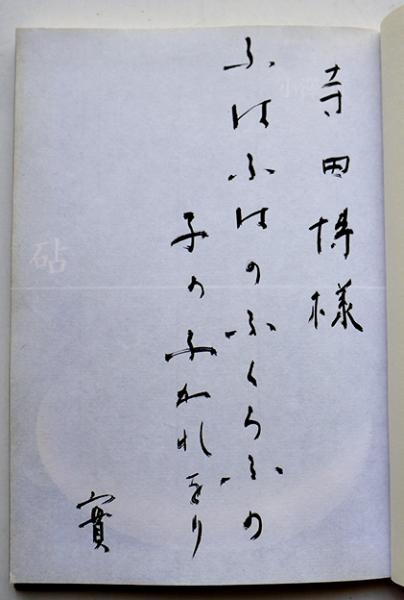 寺田博様
ふはふはのふくろふの
子のふかれをり
實
砧